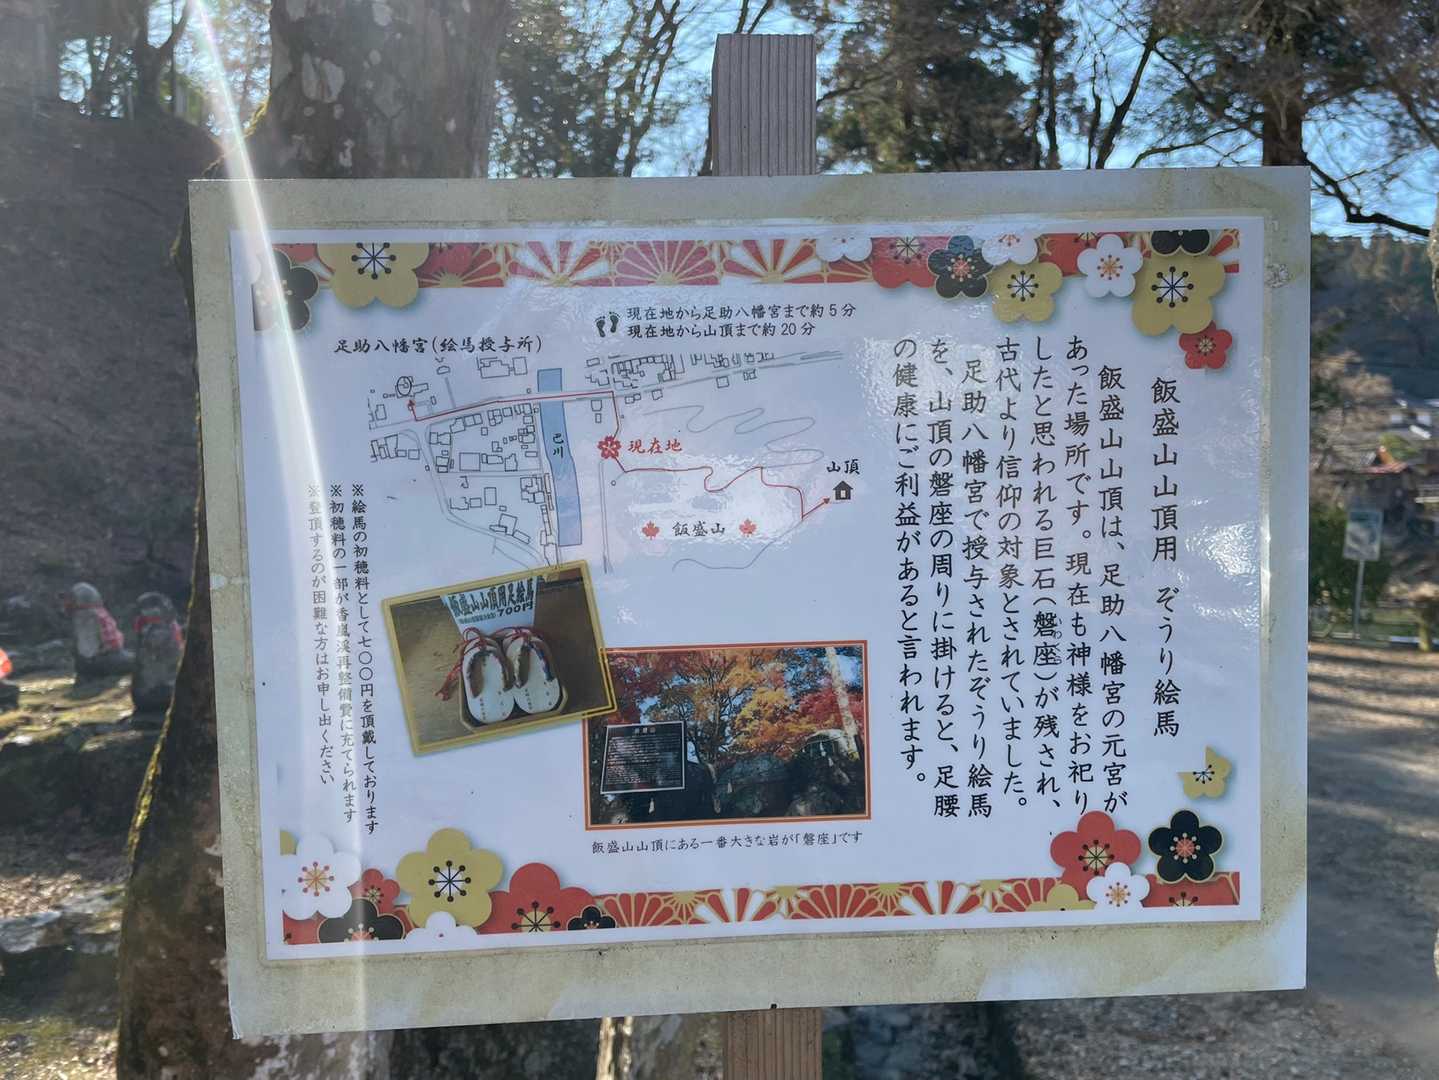 現在地から足助八幡宮まで約5分
現在地から山頂まで約20分
足助八幡宮(絵馬授与所)
巴川
現在地
山頂
飯盛山
飯盛山山頂用 ぞうり絵馬
飯盛山山頂は、足助八幡宮の元宮が
あった場所です。現在も神様をお祀り
したと思われる巨石(磐座)が残され、
いわくら
古代より信仰の対象とされていました。
足助八幡宮で授与されたぞうり絵馬
を、山頂の磐座の周りに掛けると、足腰
の健康にご利益があると言われます。
※絵馬の初穂料として七〇〇円を頂戴しております
※初穂料の一部が香嵐渓再整備費に充てられます
※登頂するのが困難な方はお申し出ください
飯盛山山頂用足絵馬
700円
飯盛山山頂にある一番大きな岩が「磐座」です